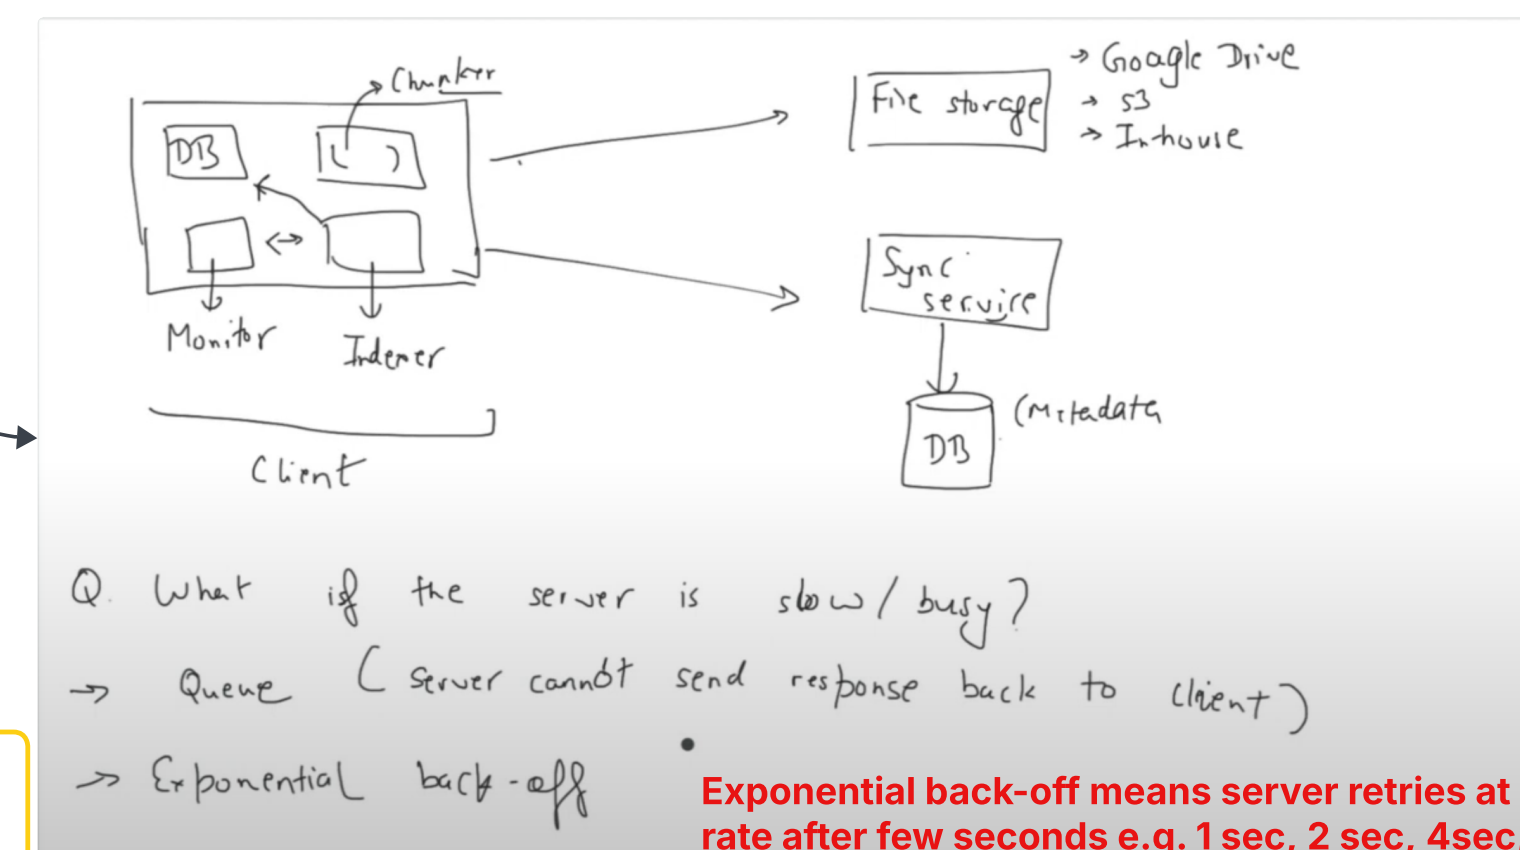 Chunker
DB
Monitor
Indexer
Client
File storage
→ Google Drive
→ S3
→ Inhouse
Sync
service
DB
(Metadata
Q. What if the server is slow / busy?
→ Queue ( server cannot send response back to client)
→ Exponential back-off
Exponential back-off means server retries at
rate after few seconds e.g. 1 sec, 2 sec, 4sec,